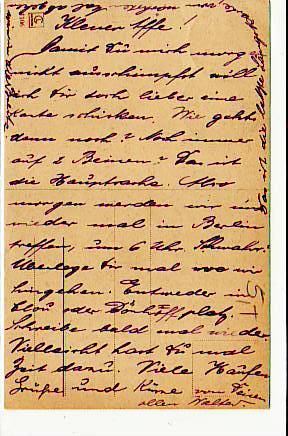 Kleiner Affe!
Damit Du mich morgen
nicht ausschimpfst will
ich Dir doch lieber eine
Karte schicken. Wie geht's
denn noch? Noch immer
auf 2 Beinen? Das ist
die Hauptsache. Also
morgen werden wir uns
wieder mal in Berlin
treffen, um 6 Uhr.
Überlege Dir mal wo wir
hingehen. Entweder in
Clou oder Dönhoffplatz.
Schreibe bald mal wieder.
Vielleicht hast Du mal
Zeit dazu. Viele Haufen
Grüße und Küsse von
Walter.
Das ist die letzte